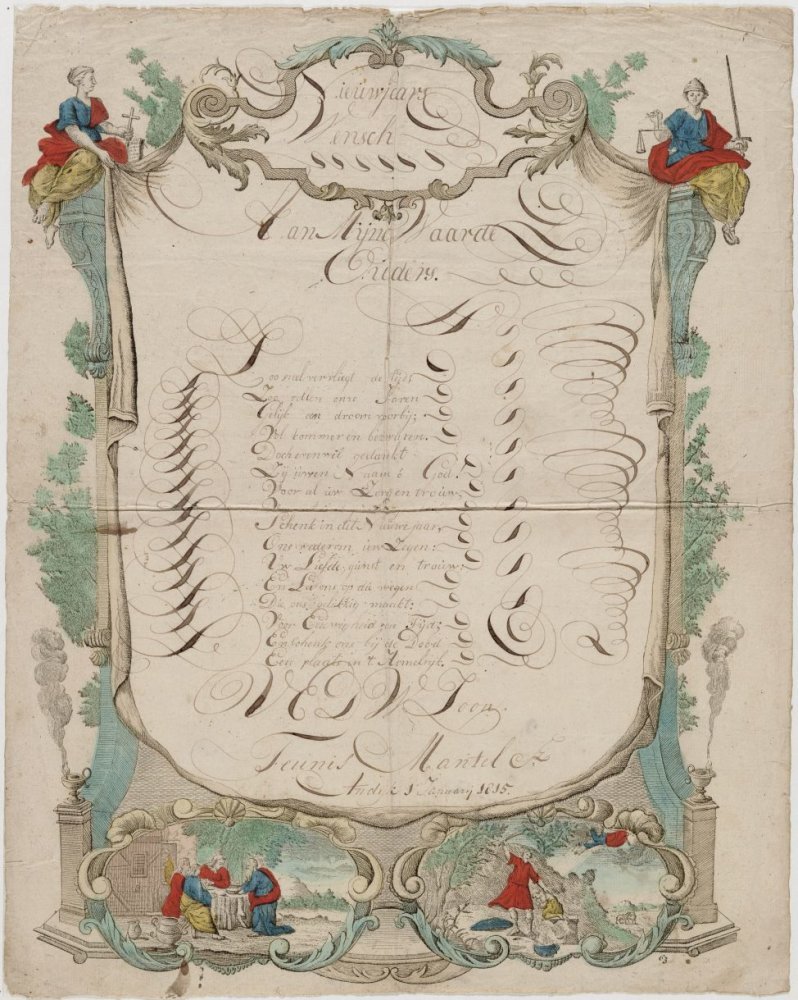 Nieuwjaars
Wensch
Aan Mijne Waarde
Ouders.
Zoo snel vervliegt de tijd;
Zoo rollen onze Jaren
Gelijk een droom voorbij;
Vol kommer en bezwaren.
Doch evenwel gedankt
Zij uwen Naam ô God!
Voor al uw Zorgen trouw
Schenk in dit Nieuwe jaar
Ons wederom uw Zegen:
Uw Liefde, gunst en trouw;
En Lei ons op die wegen
Die ons gelukkig maakt;
Voor Eeuwigheid en Tijd;
En schenk ons bij de Dood
Een plaats in 't Hemelrijk.
UEDW Zoon
Teunis Mantel
Andijk 1 January 1815.